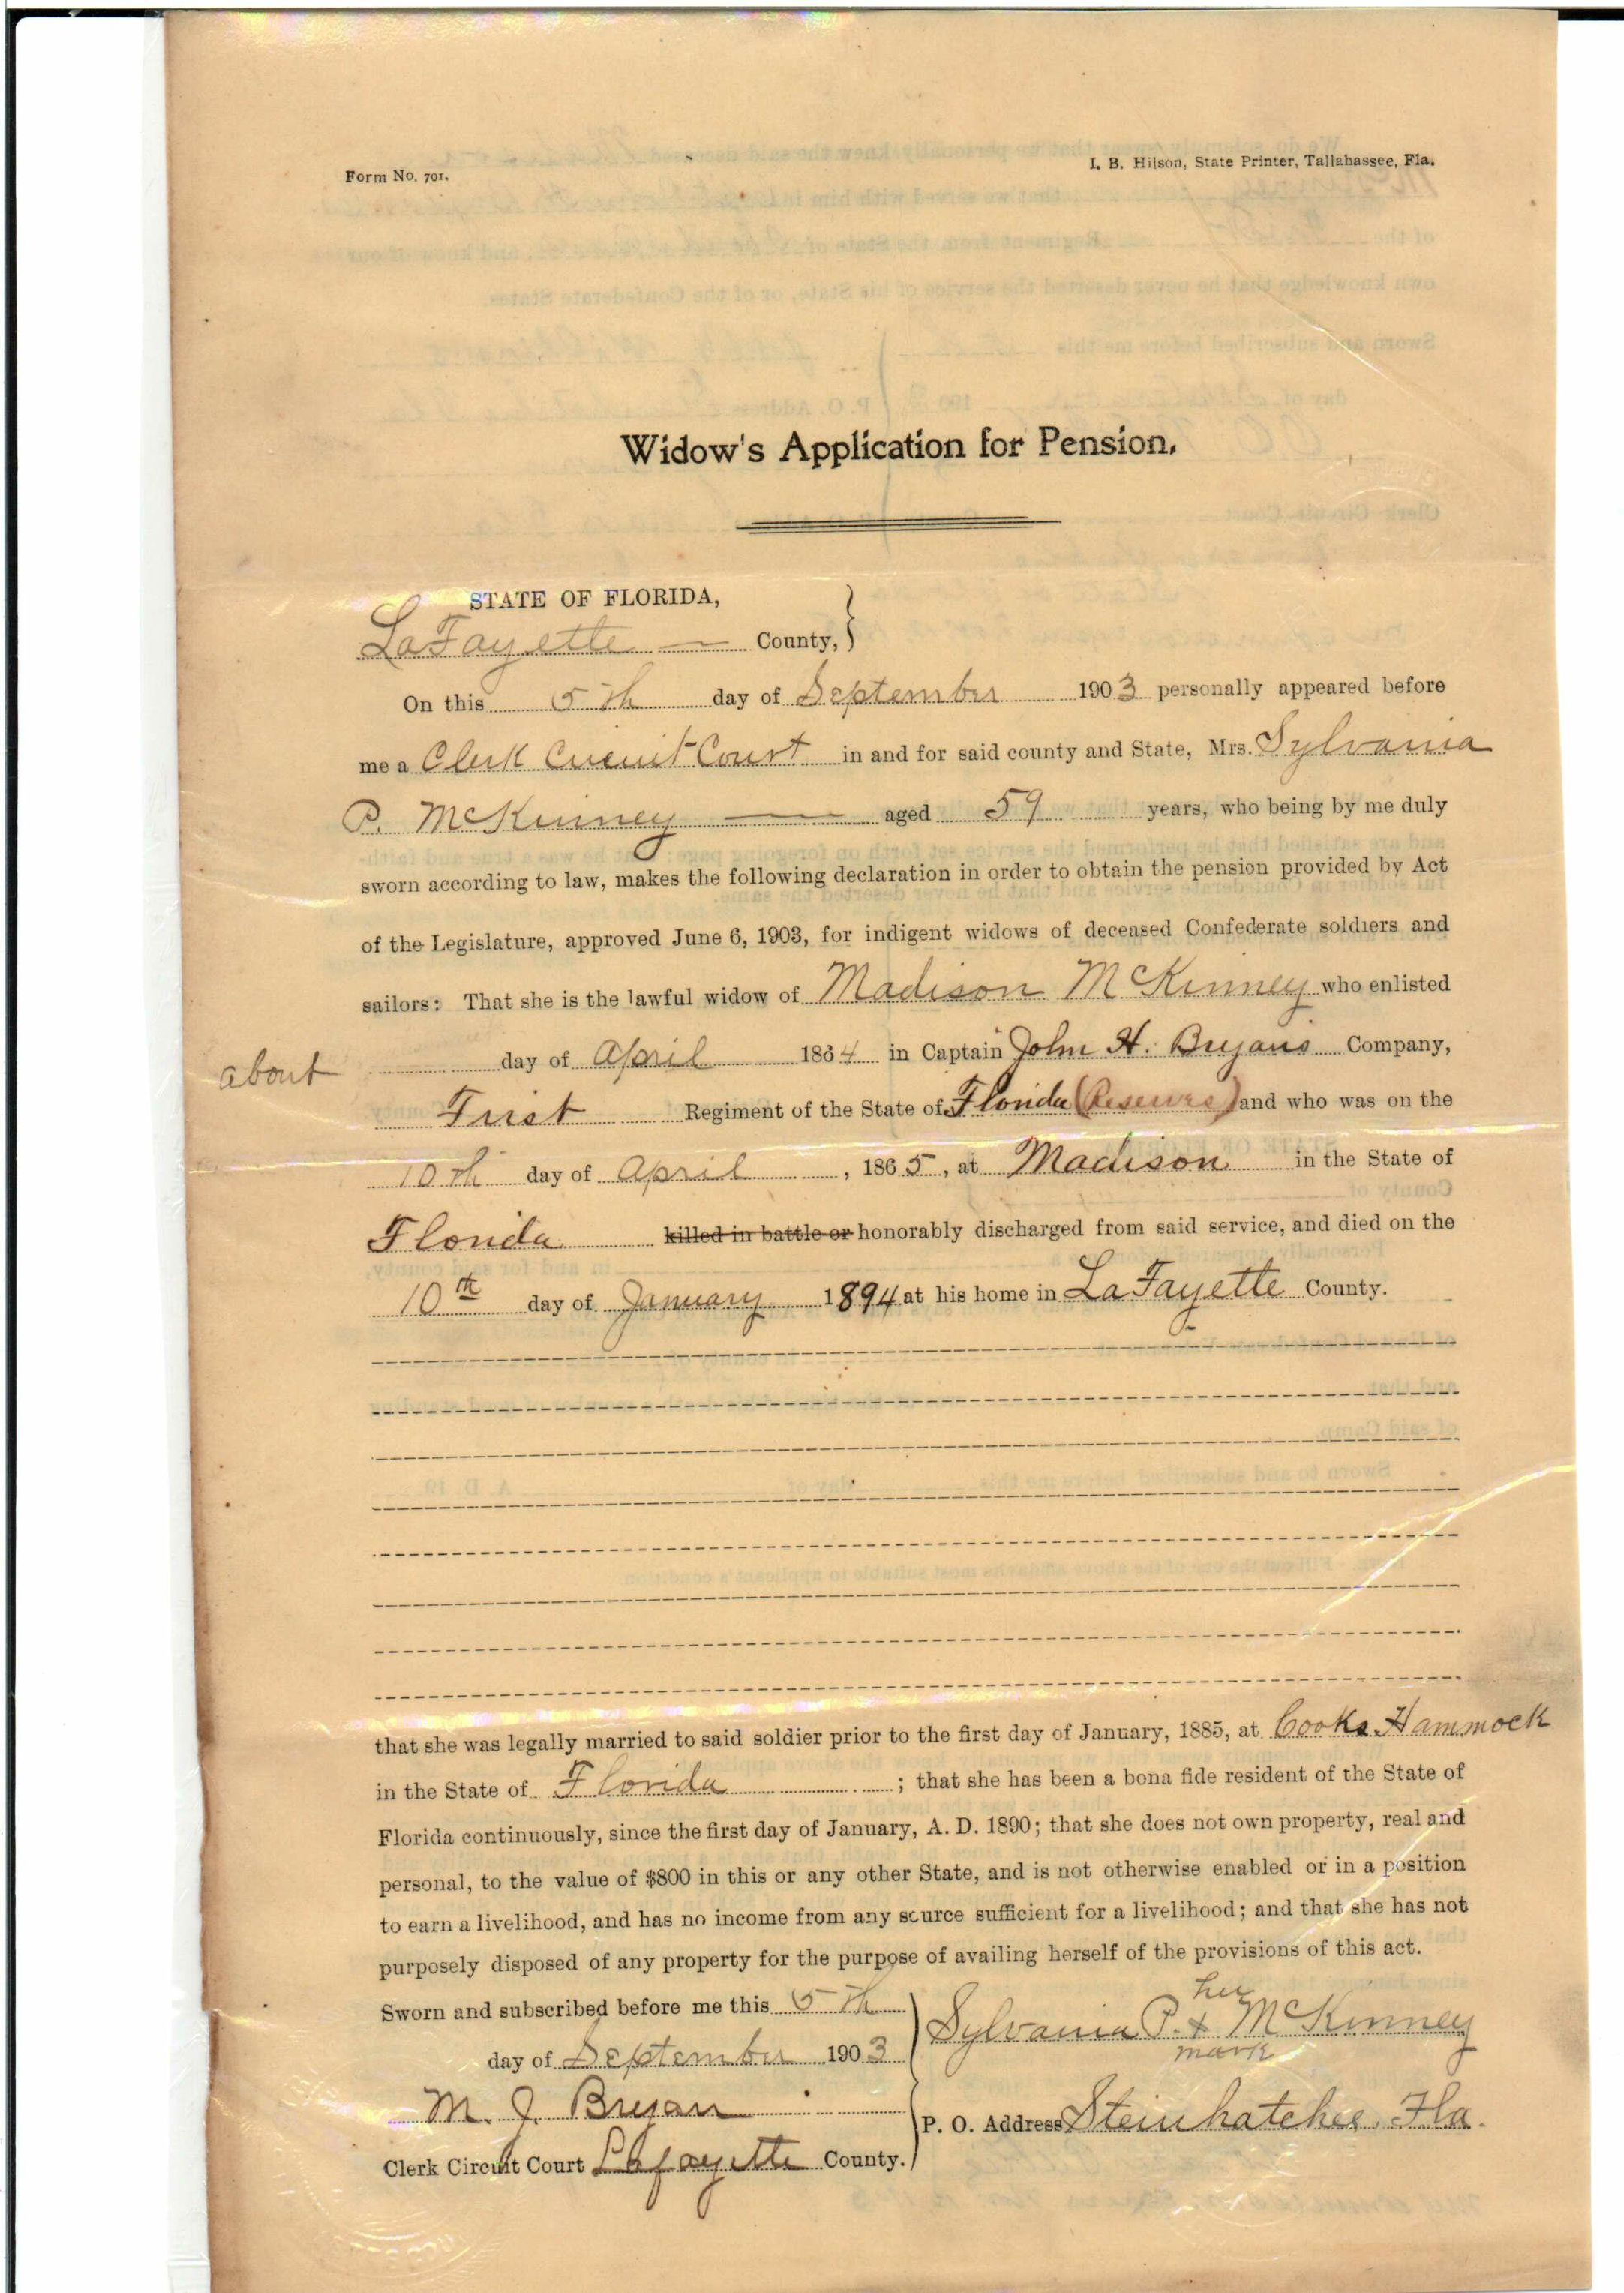 Form No. 701.
I. B. Hilson, State Printer, Tallahassee, Fla.
Widow's Application for Pension.
STATE OF FLORIDA,
LaFayette County,
On this 5th day of September 1903 personally appeared before
me a Clerk Circuit Court in and for said county and State, Mrs. Sylvania
P. McKinney aged 59 years, who being by me duly
sworn according to law, makes the following declaration in order to obtain the pension provided by Act
of the Legislature, approved June 6, 1903, for indigent widows of deceased Confederate soldiers and
sailors: That she is the lawful widow of Madison McKinney who enlisted
about day of April 1864 in Captain John H. Bryans Company,
First Regiment of the State of Florida (Reserves) and who was on the
10th day of April, 1865, at Madison in the State of
Florida killed in battle or honorably discharged from said service, and died on the
10th day of January 1894 at his home in LaFayette County.
that she was legally married to said soldier prior to the first day of January, 1885, at Cooks Hammock
in the State of Florida; that she has been a bona fide resident of the State of
Florida continuously, since the first day of January, A. D. 1890; that she does not own property, real and
personal, to the value of $800 in this or any other State, and is not otherwise enabled or in a position
to earn a livelihood, and has no income from any source sufficient for a livelihood; and that she has not
purposely disposed of any property for the purpose of availing herself of the provisions of this act.
Sworn and subscribed before me this 5th
day of September 1903
M. J. Bryan
Clerk Circuit Court Lafayette County.
her
Sylvania P. x McKinney
mark
P. O. Address Steinhatchee, Fla.